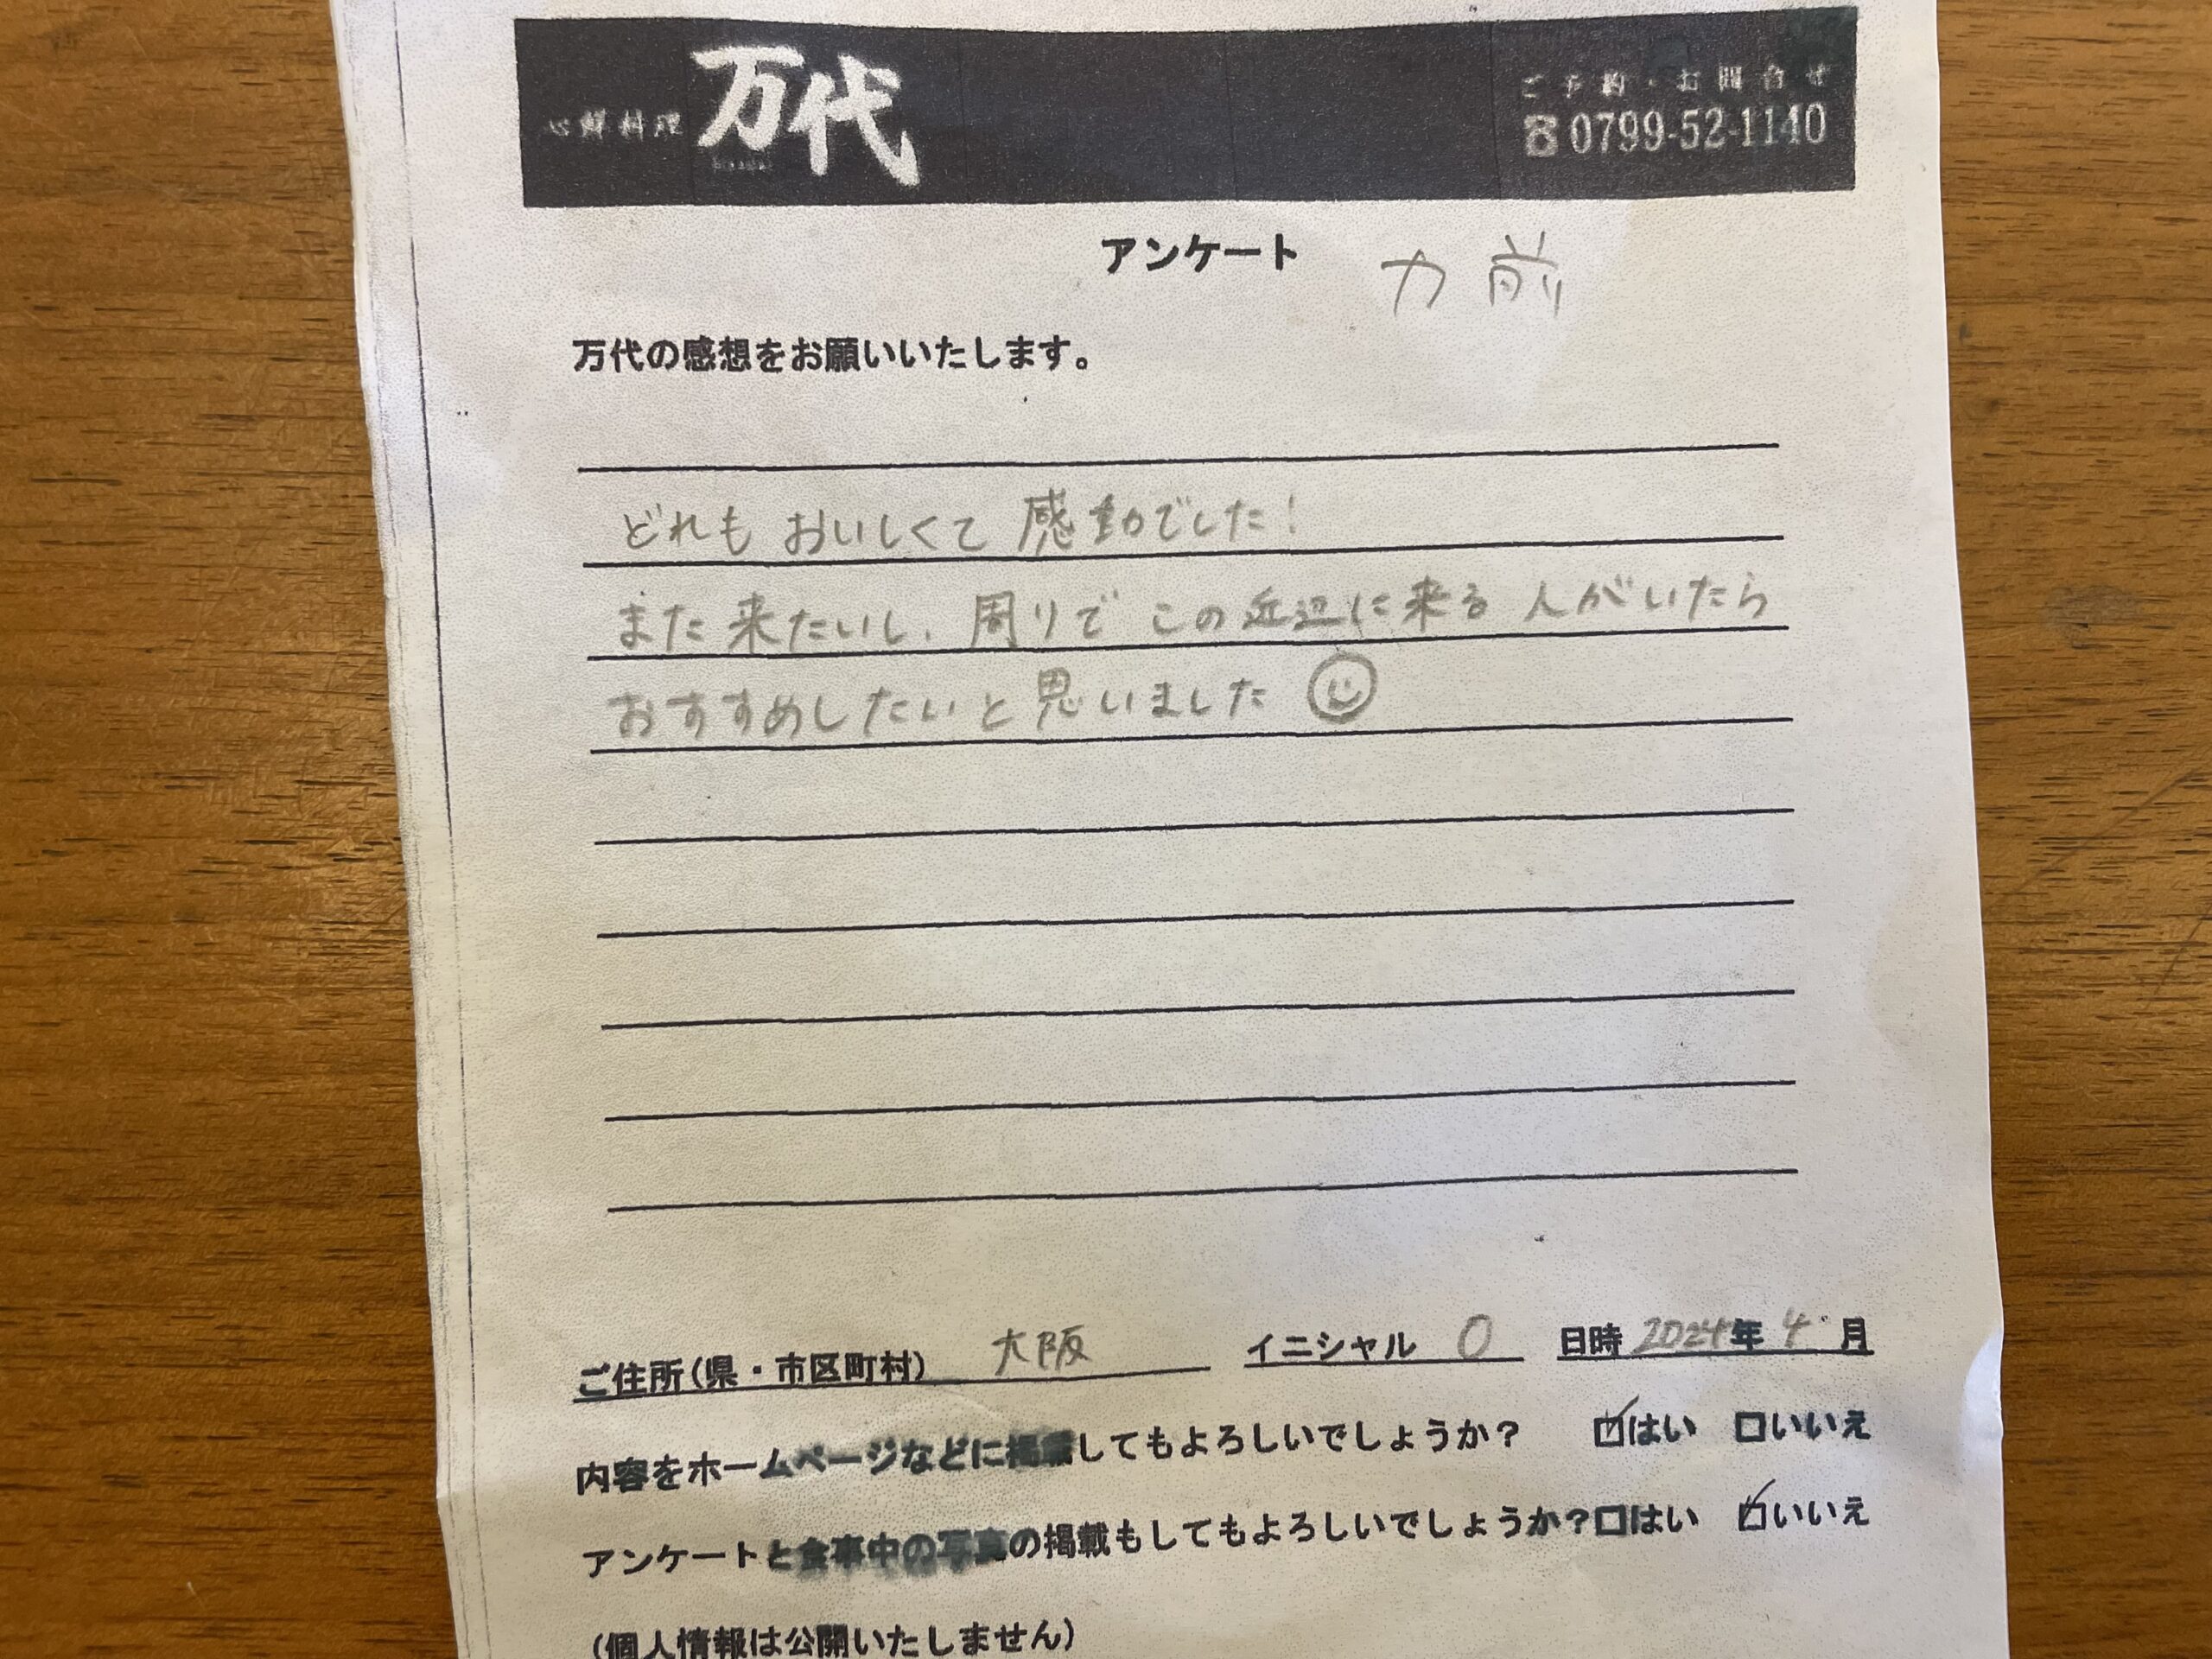 心鮮料理 万代
ご予約・お問合せ
☎0799-52-1140
アンケート カ前
万代の感想をお願いいたします。
どれもおいしくて感動でした!
また来たいし、周りでこの近辺に来る人がいたら
おすすめしたいと思いました
ご住所(県・市区町村) 大阪 イニシャル O 日時 2024年4月
内容をホームページなどに掲載してもよろしいでしょうか? はい いいえ
アンケートと食事中の写真の掲載もしてもよろしいでしょうか? はい いいえ
(個人情報は公開いたしません)